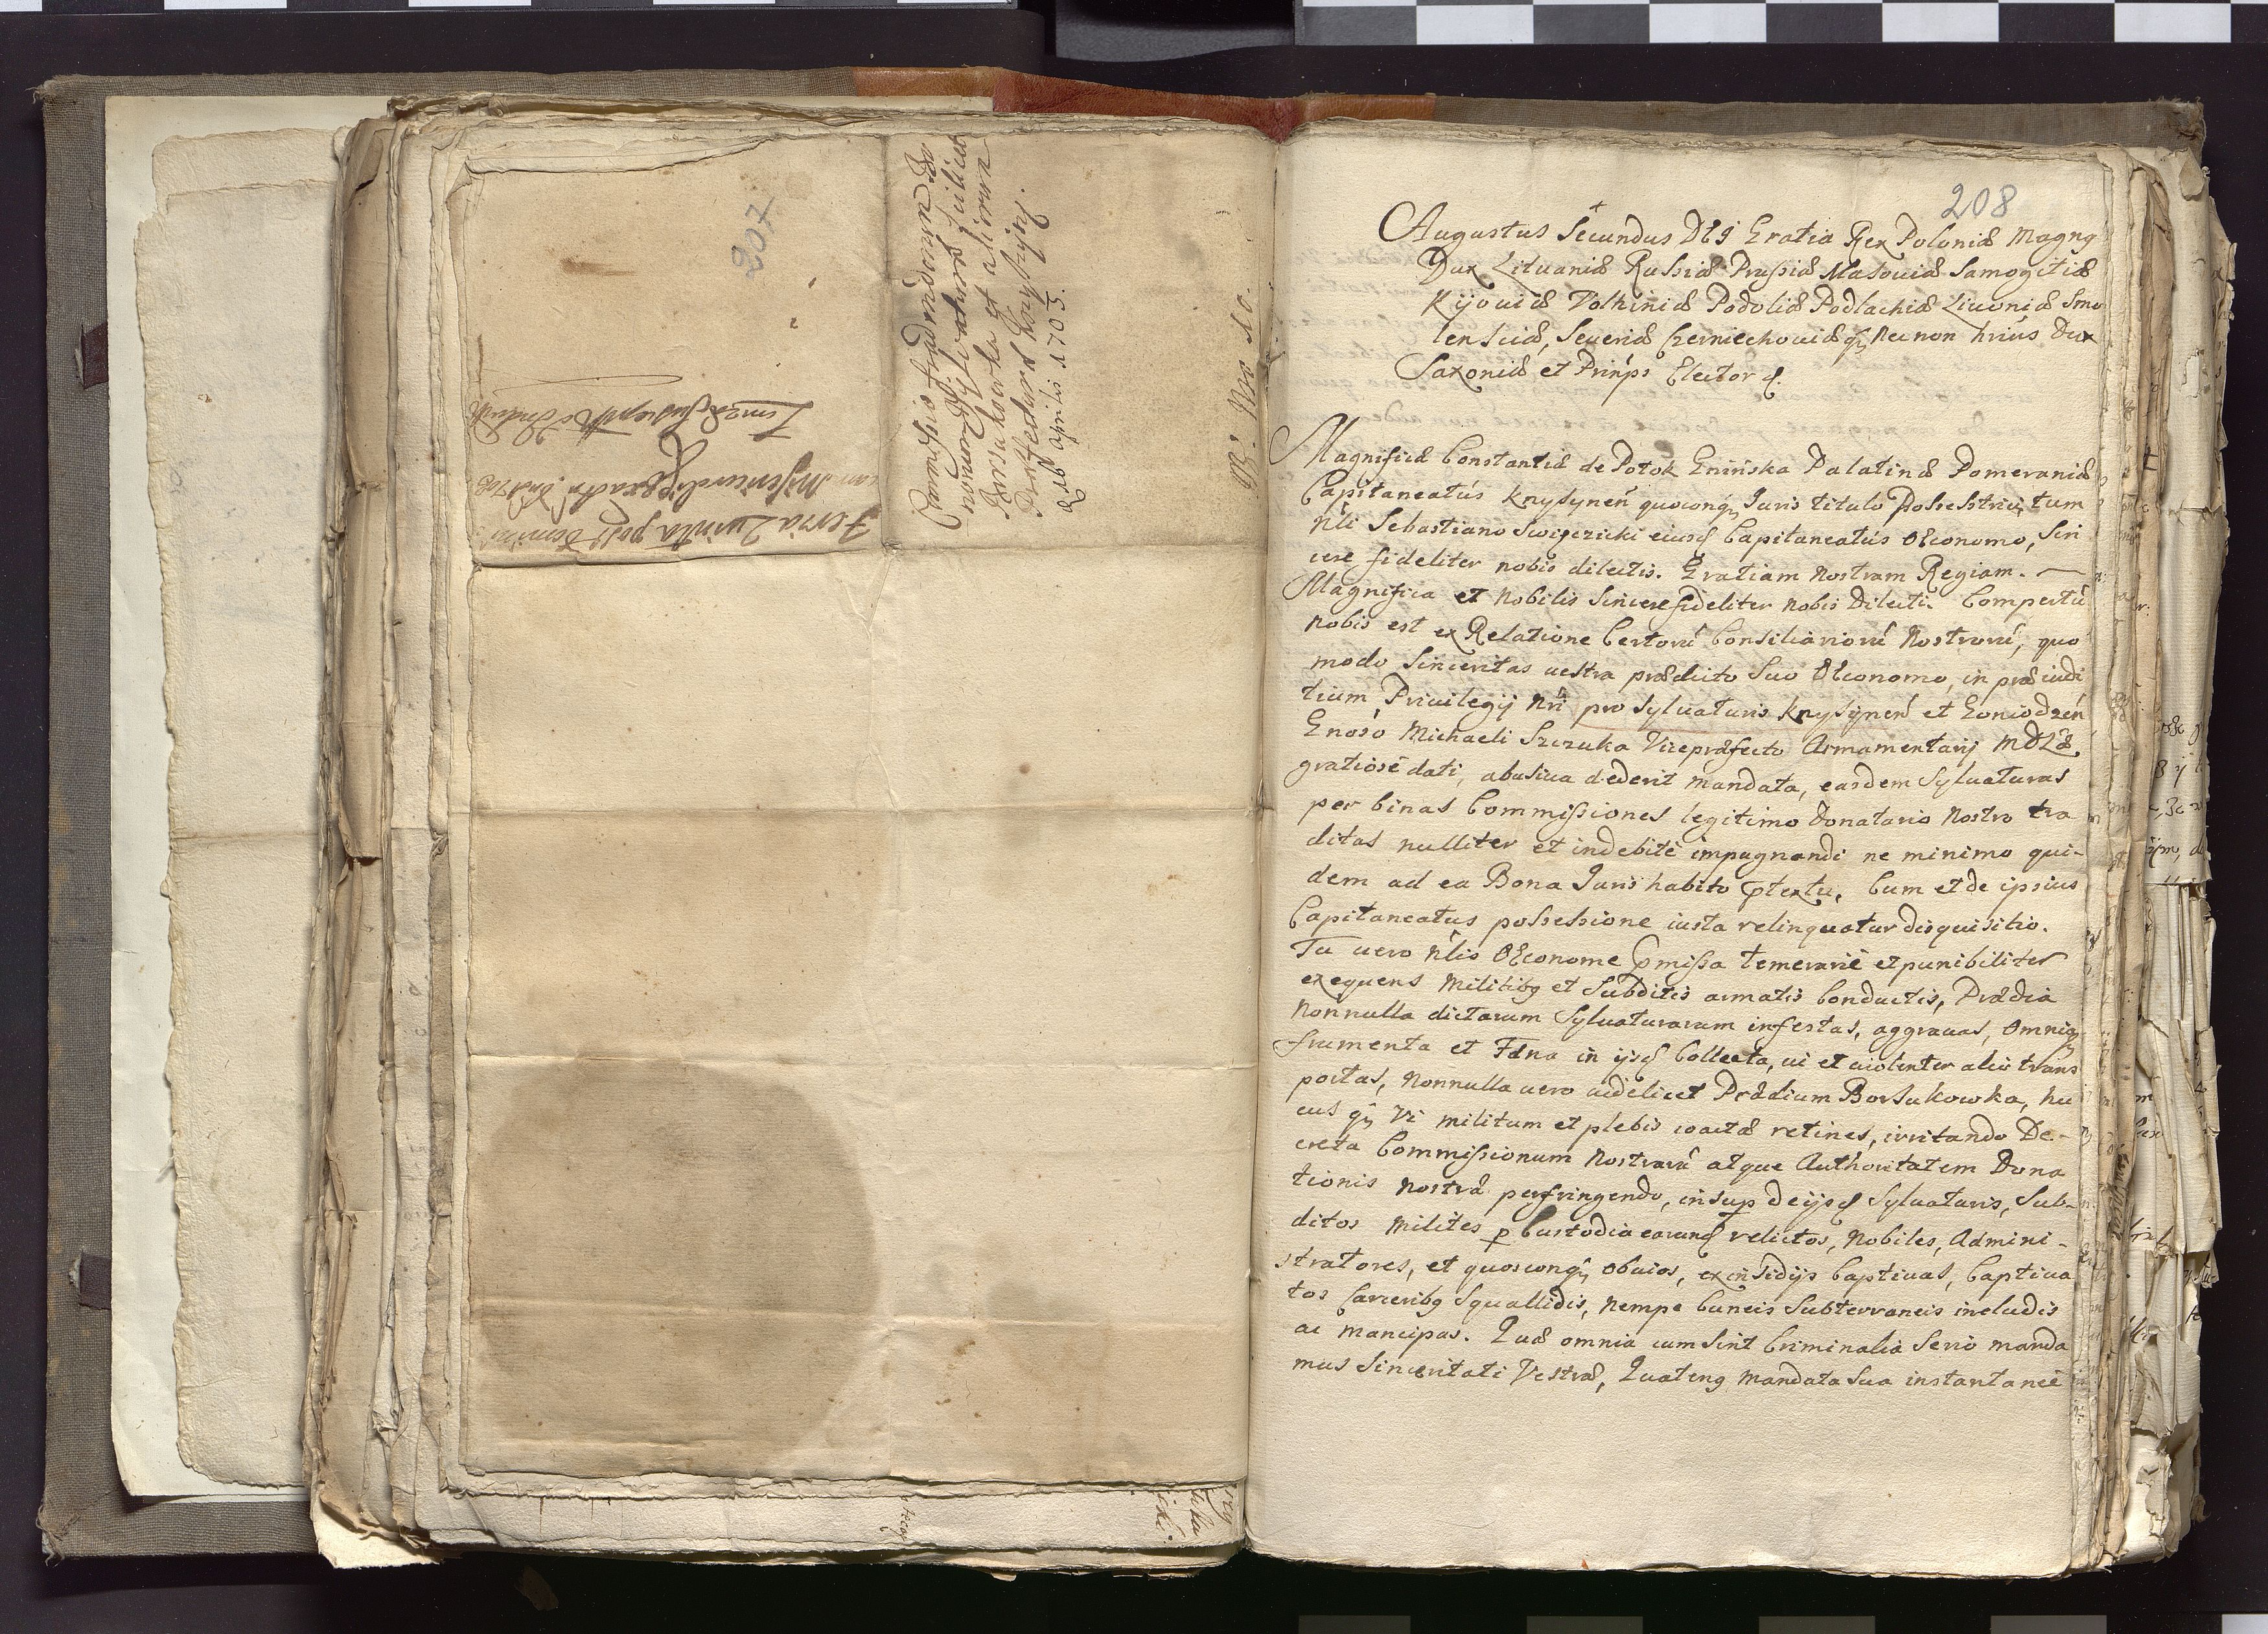 207
Feria Quinta post Domini
cam Misericordiae
Terrae
Commissio tradendorum Bo
norum Sylvaturae scilicet
Borsukowka et aliorum
Praefecturae Knyszynen.
aprilis 1703.
Nro 10.
208
Augustus Secundus DEI Gratia Rex Poloniæ Magnꝰ
Dux Lituaniæ Russiæ Prussiæ Masoviæ Samogitiæ
Kijoviæ Volhiniæ Podoliæ Podlachiæ Livoniæ Smo
lensciæ, Severiæ Czerniechoviæ qȝ nec non hrius Dux
Saxoniæ et Prinps Elector &.
Magnificæ Constantiæ de Potok Gninska Palatinæ Pomeraniæ
Capitaneatus Knyszynen quocunqȝ Juris titulo Possestrici, tum
Nli Sebastiano Swigczicki eiusd Capitaneatus OEconomo, Sin
cere fideliter nobis dilectis. Gratiam Nostram Regiam.
Magnifica et Nobilis Sincere fideliter nobis Dilecti. Compertū
nobis est ex Relatione Certorū Consiliariorū Nostrorū, quo
modo Sinceritas uestra prædicto Suo OEconomo, in præiudi
tium Priuilegij Nri pro Syluaturis Knyszynen et Goniądzen
Gnoso Michaeli Szczuka Vicepræfecto Armamentarij MDLæ
gratiose dati, abusiua dederit mandata, easdem Syluaturas
per binas Commissiones legitimo Donatario Nostro tra
ditas nulliter et indebite impugnandi ne minimo qui-
dem ad ea Bona Juris habito ptextu, Cum et de ipsius
Capitaneatus possessione iusta relinquatur disquisitio.
Tu uero Nlis OEconome pmissa temerarie et punibiliter
exequens Militibꝰ et Subditis armatis Conductis, Prædia
Nonnulla dictarum Syluaturarum infestas, aggrauas, Omniaqȝ
frumenta et Fæna in ijsd Collecta, ui et uiolenter alio trans
portas, Nonnulla uero uidelicet Prædium Borsukowka, hu
cus qȝ Vi militum et plebis coactæ retines, irritando De-
creta Commissionum Nostrarū atque Authoritatem Dona
tionis Nostræ perfringendo, insup de ijsd Syluaturis, Sub-
ditos Milites p Custodia earund relictos, Nobiles, Admini-
stratores, et quoscunqȝ obuios, ex insidijs Captiuas, Captiua
tos Carceribꝰ Squallidis, Nempe Cuneis Subterraneis includis
ac mancipas. Quæ omnia cum Sint Criminalia Serio manda
mus Sinceritati Vestræ, Quatenꝰ mandata Sua instantanee